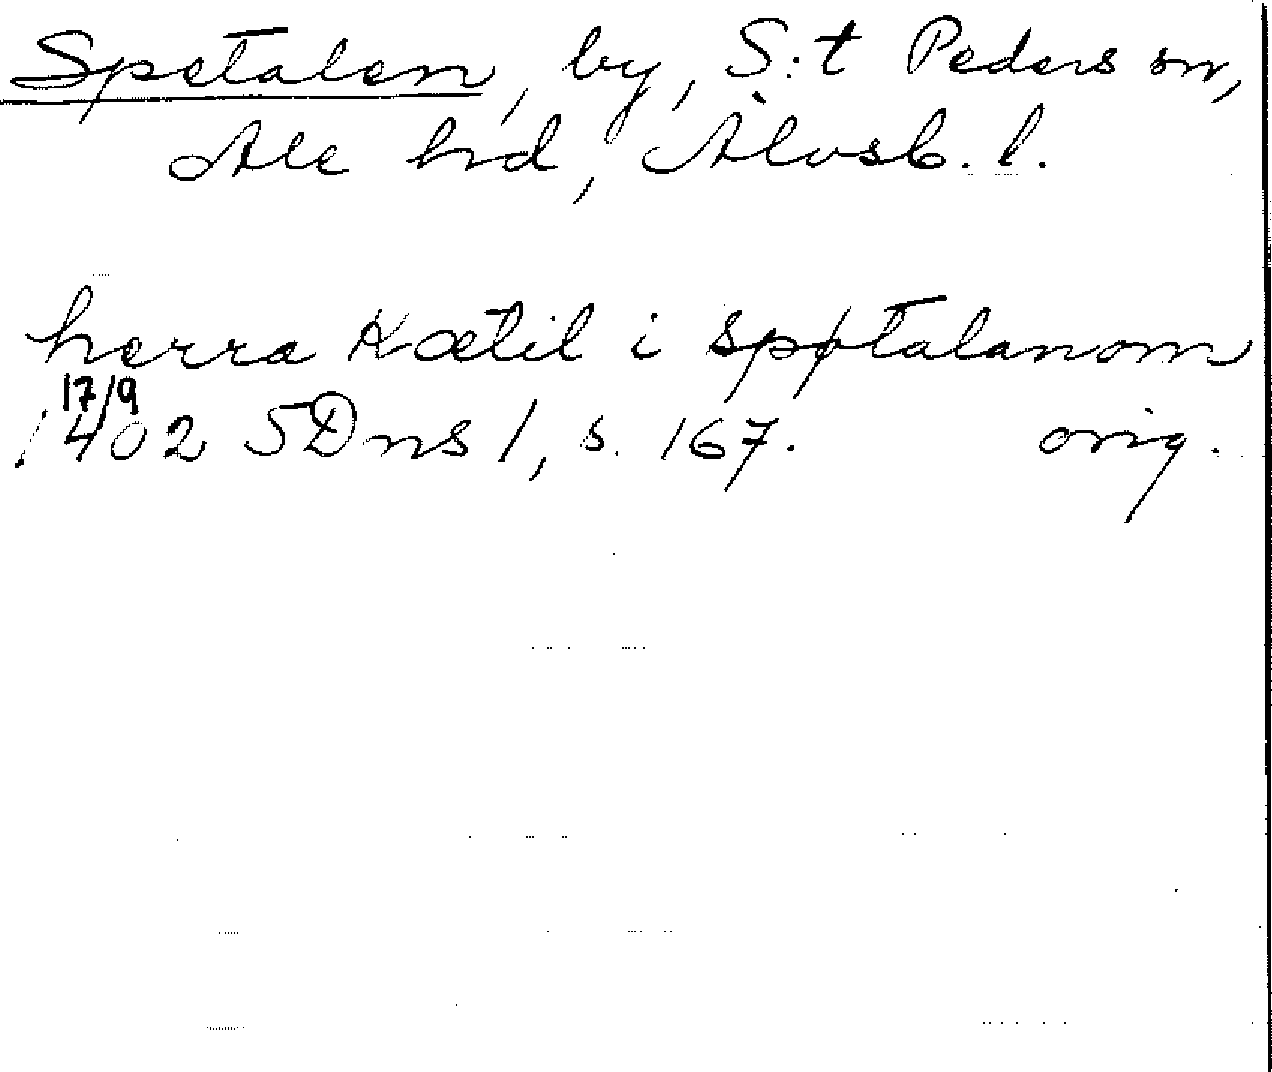 Spetalen, by, S:t Peders sn,
Ale hd, Älvsb. l.
herra Kætil i spøtalanom
17/9
1402 SDns 1, s. 167. orig.